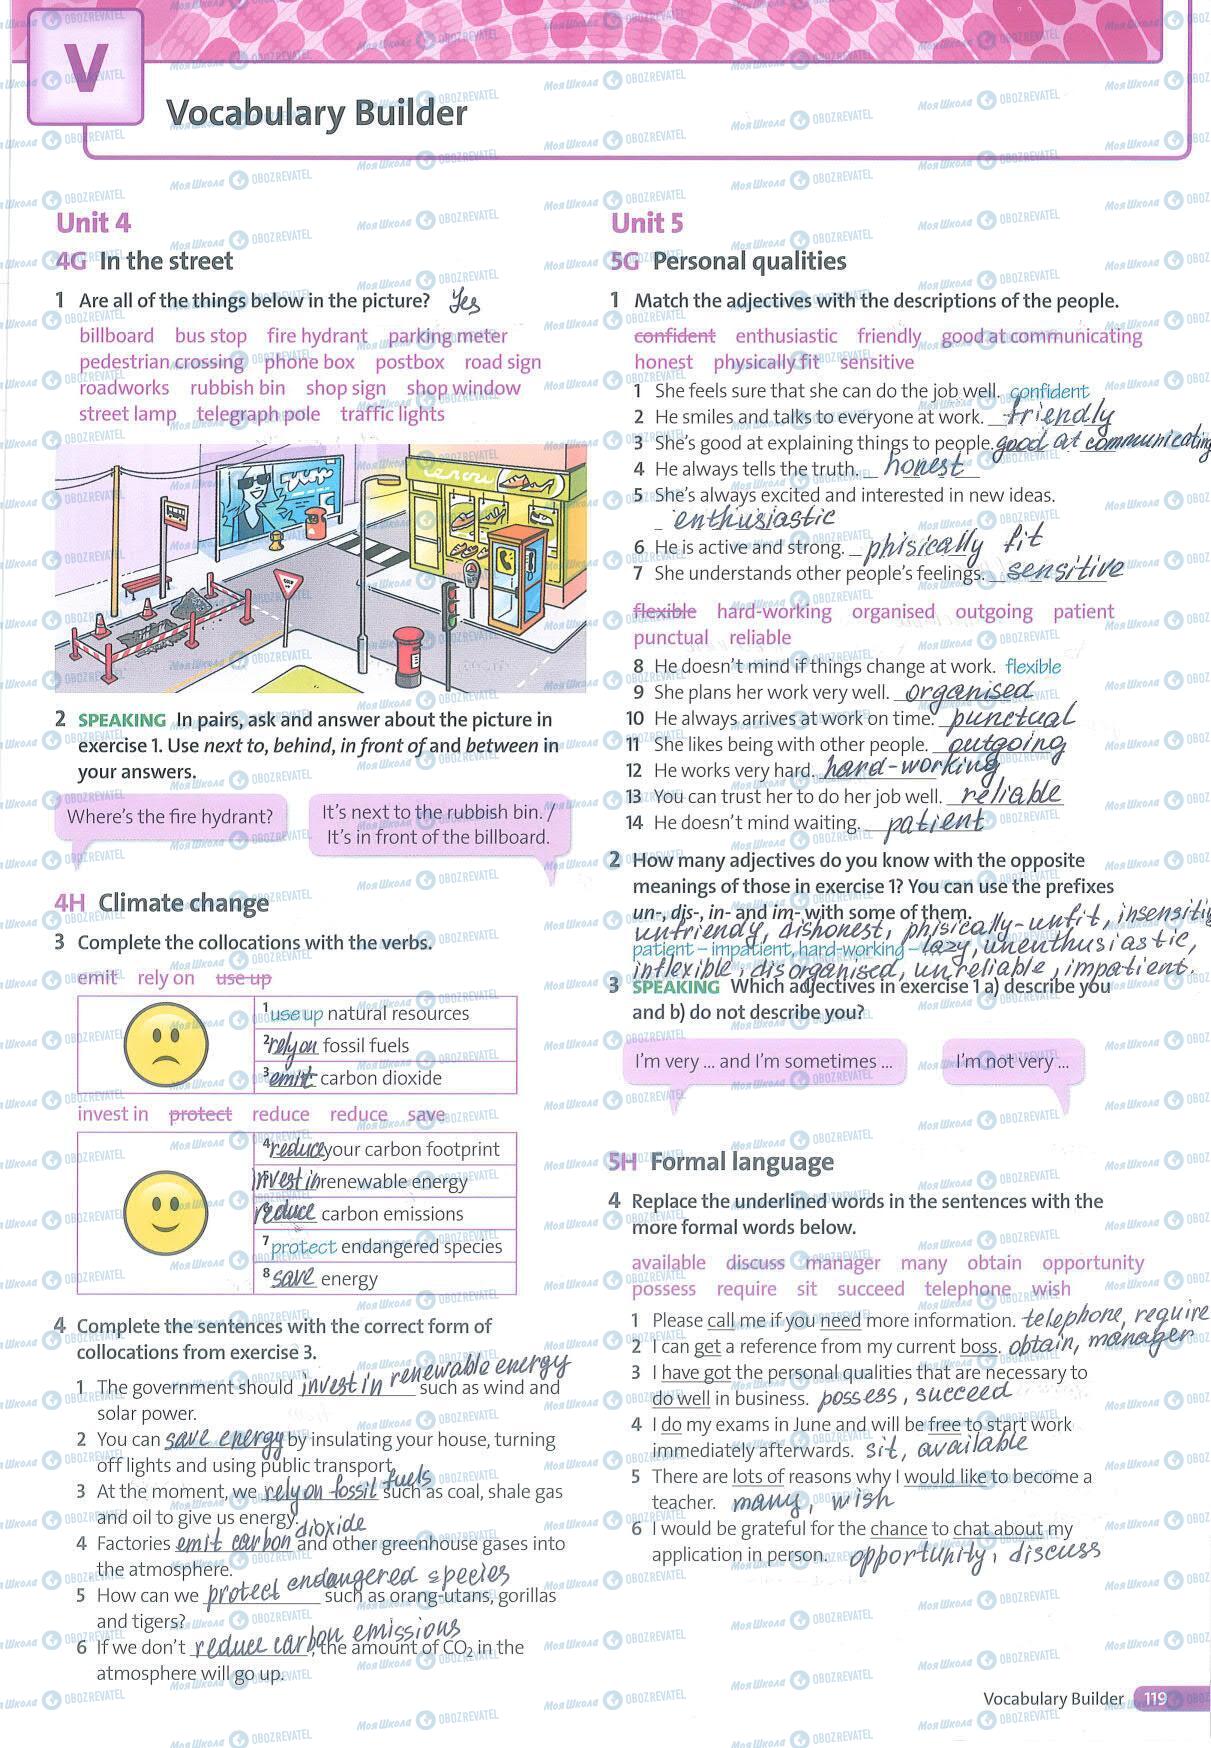 V
Vocabulary Builder
Unit 4
4G In the street
1 Are all of the things below in the picture? Yes
billboard bus stop fire hydrant parking meter
pedestrian crossing phone box postbox road sign
roadworks rubbish bin shop sign shop window
street lamp telegraph pole traffic lights
2 SPEAKING In pairs, ask and answer about the picture in
exercise 1. Use next to, behind, in front of and between in
your answers.
Where's the fire hydrant?
It's next to the rubbish bin. /
It's in front of the billboard.
4H Climate change
3 Complete the collocations with the verbs.
emit rely on use up
1 use up natural resources
2 rely on fossil fuels
3 emit carbon dioxide
invest in protect reduce reduce save
4 reduce your carbon footprint
invest in renewable energy
reduce carbon emissions
7 protect endangered species
8 save energy
4 Complete the sentences with the correct form of
collocations from exercise 3.
1 The government should invest in renewable energy such as wind and
solar power.
2 You can save energy by insulating your house, turning
off lights and using public transport.
3 At the moment, we rely on fossil fuels such as coal, shale gas
and oil to give us energy.
4 Factories emit carbon dioxide and other greenhouse gases into
the atmosphere.
5 How can we protect endangered species such as orang-utans, gorillas
and tigers?
6 If we don't reduce carbon emissions, the amount of CO2 in the
atmosphere will go up.
Unit 5
5G Personal qualities
1 Match the adjectives with the descriptions of the people.
confident enthusiastic friendly good at communicating
honest physically fit sensitive
1 She feels sure that she can do the job well. confident
2 He smiles and talks to everyone at work. friendly
3 She's good at explaining things to people. good at communicating
4 He always tells the truth. honest
5 She's always excited and interested in new ideas.
enthusiastic
6 He is active and strong. phisically fit
7 She understands other people's feelings. sensitive
flexible hard-working organised outgoing patient
punctual reliable
8 He doesn't mind if things change at work. flexible
9 She plans her work very well. organised
10 He always arrives at work on time. punctual
11 She likes being with other people. outgoing
12 He works very hard. hard-working
13 You can trust her to do her job well. reliable
14 He doesn't mind waiting. patient
2 How many adjectives do you know with the opposite
meanings of those in exercise 1? You can use the prefixes
un-, dis-, in- and im- with some of them.
unfriendy, dishonest, phisically-unfit, insensitiv
patient – impatient, hard-working – lazy, unenthusiastic,
inflexible, disorganised, unreliable, impatient.
3 SPEAKING Which adjectives in exercise 1 a) describe you
and b) do not describe you?
I'm very ... and I'm sometimes ...
I'm not very ...
5H Formal language
4 Replace the underlined words in the sentences with the
more formal words below.
available discuss manager many obtain opportunity
possess require sit succeed telephone wish
1 Please call me if you need more information. telephone, require
2 I can get a reference from my current boss. obtain, manager
3 I have got the personal qualities that are necessary to
do well in business. possess, succeed
4 I do my exams in June and will be free to start work
immediately afterwards. sit, available
5 There are lots of reasons why I would like to become a
teacher. many, wish
6 I would be grateful for the chance to chat about my
application in person. opportunity, discuss
Vocabulary Builder 119
МояШкола OBOZREVATEL